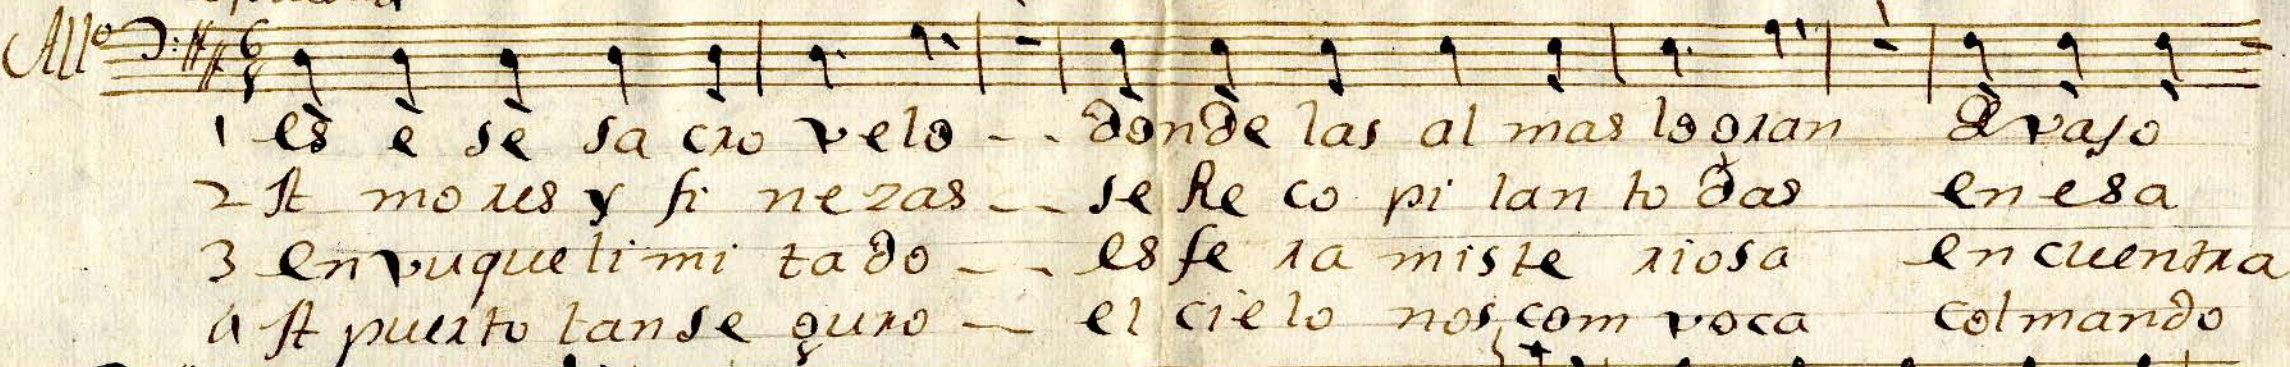 Allo 6 8
1 es e se sa cro velo - - donde las al mas logran devajo
2 A mores y fi nezas - - se Re co pi lan to das en esa
3 en vuque limi tado - - es fe ra miste riosa encuentra
4 A puerto tan se guro - - el cielo nos com voca colmando